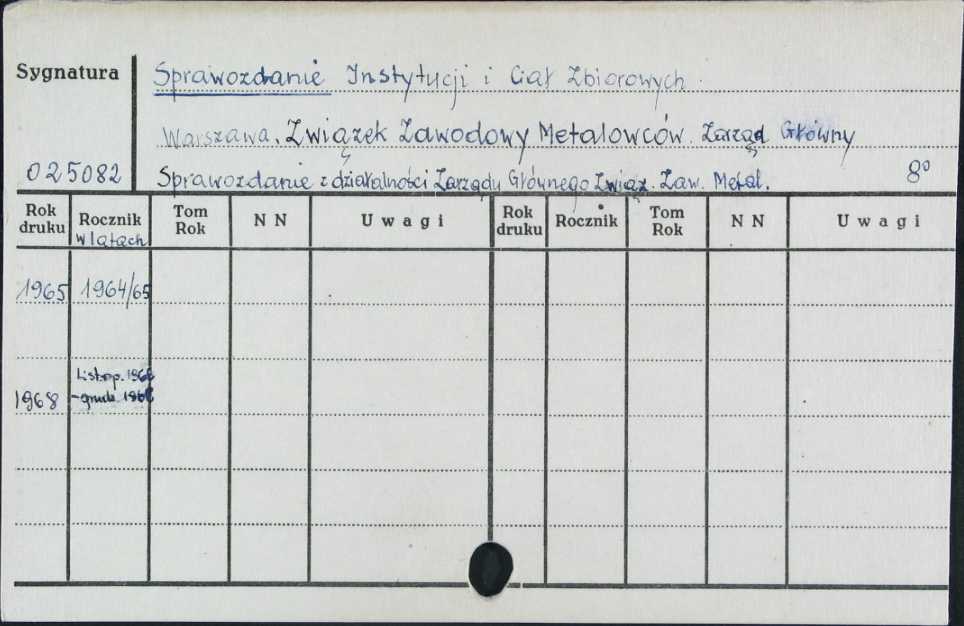 Sygnatura
Sprawozdanie Instytucji i Ciał Zbiorowych.
Warszawa. Związek Zawodowy Metalowców. Zarząd Główny
025082
Sprawozdanie z działalności Zarządu Głównego Związ. Zaw. Metal. 8°
Rok druku Rocznik w latach Tom Rok N N Uwagi Rok druku Rocznik Tom Rok N N Uwagi
1965 1964/65
Listop.
1968 - grudz.